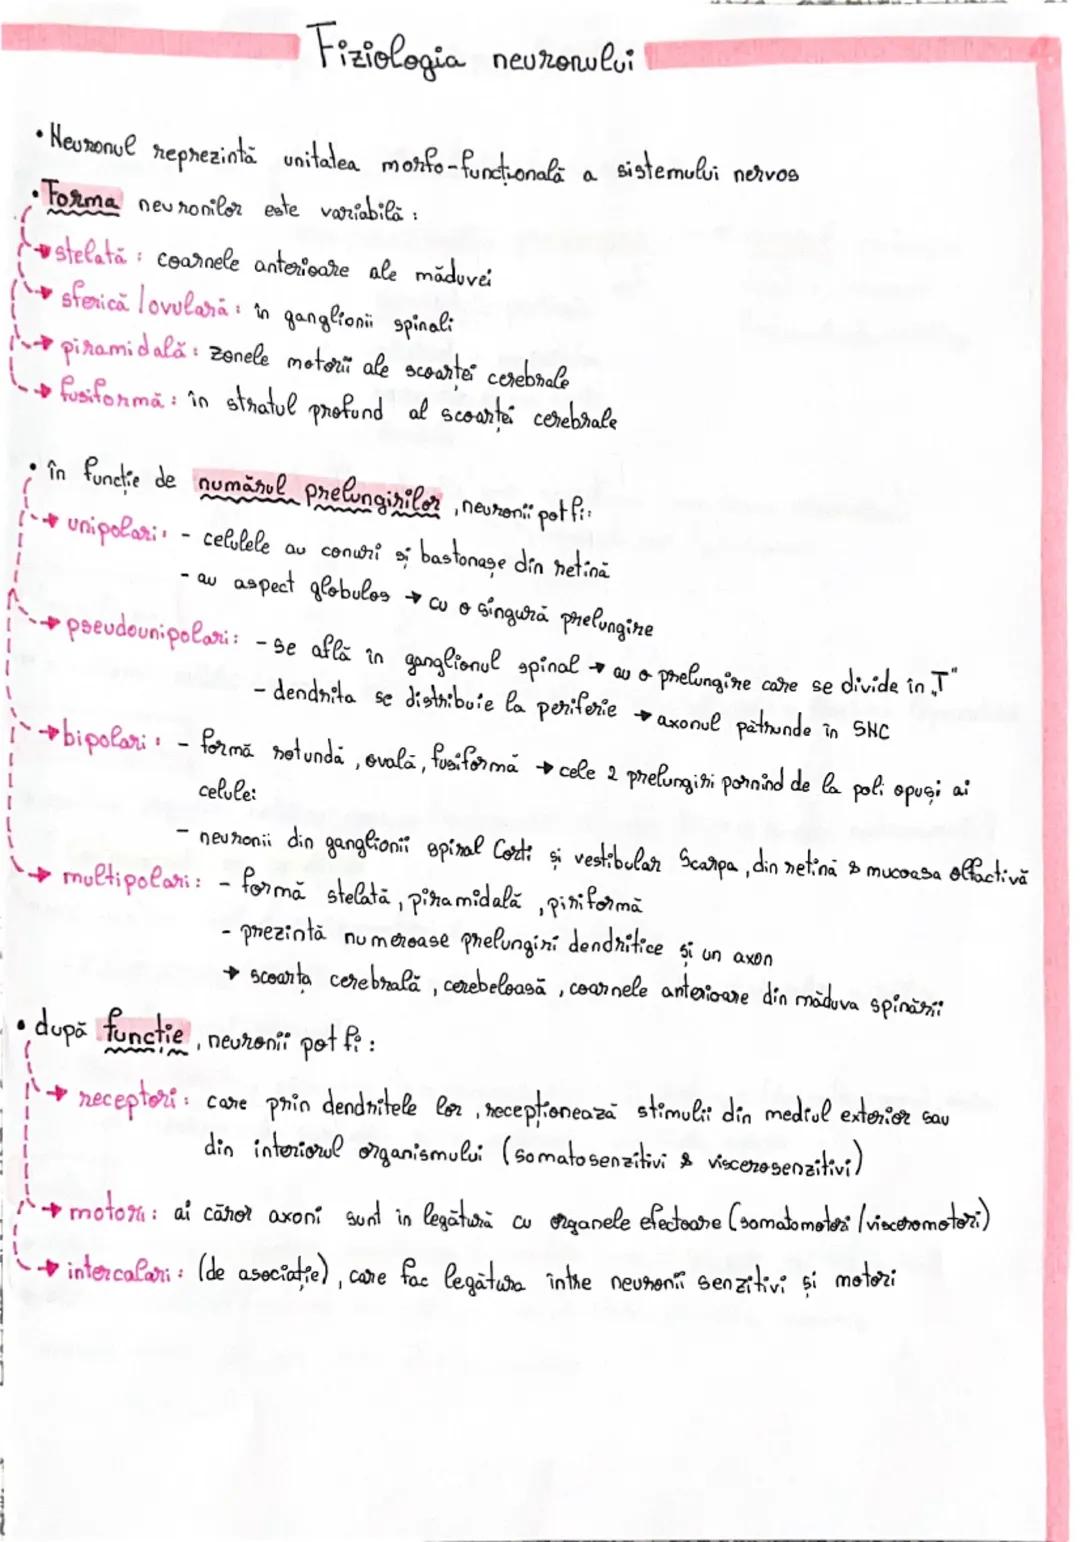 Fiziologia neuronului
• Neuronul reprezintă unitatea morfo-funcțională a sistemului nervos
• Forma neuronilor este variabilă :
→ stelată : coarnele anterioare ale măduvei
→ sferică / ovulară : în ganglionii spinali
→ piramidală : zonele motorii ale scoarței cerebrale
→ fusiformă : în stratul profund al scoarței cerebrale
• în funcție de numărul prelungirilor , neuronii pot fi:
→ unipolari : - celulele au conuri și bastonașe din retină
- au aspect globulos → cu o singură prelungire
→ pseudounipolari : - se află în ganglionul spinal → au o prelungire care se divide în „T"
- dendrita se distribuie la periferie → axonul pătrunde în SNC
→ bipolari : - formă rotundă , ovală , fusiformă → cele 2 prelungiri pornind de la poli opuși ai
celulei
- neuronii din ganglionii spiral Corti și vestibular Scarpa , din retină & mucoasa olfactivă
→ multipolari : - formă stelată , piramidală , piriformă
- prezintă numeroase prelungiri dendritice și un axon
→ scoarța cerebrală , cerebeloasă , coarnele anterioare din măduva spinării
• după funcție , neuronii pot fi :
→ receptori : care prin dendritele lor , recepționează stimulii din mediul exterior sau
din interiorul organismului (somatosenzitivi & viscerosenzitivi)
→ motori : ai căror axoni sunt în legătură cu organele efectoare (somatomotori / visceromotori)
→ intercalari : (de asociație) , care fac legătura între neuronii senzitivi și motori